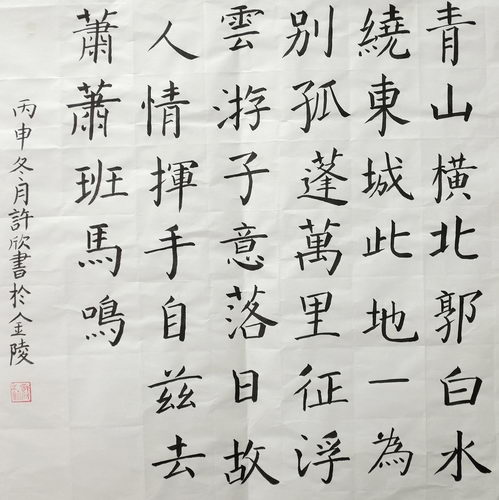 青山橫北郭白水
繞東城此地一為
別孤蓬萬里征浮
雲游子意落日故
人情揮手自茲去
蕭蕭班馬鳴
丙申冬月許欣書於金陵